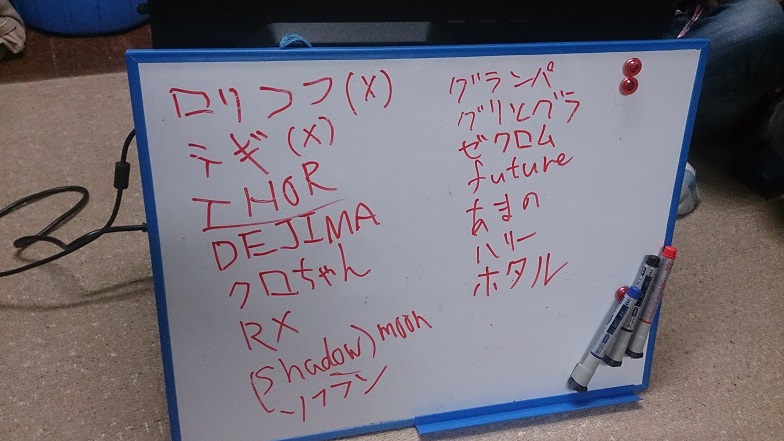 ロリコフ(X)
テギ(X)
THOR
DEJIMA
クロちゃん
RX
(Shadow)moon
ソフラン
グランパ
グリとグラ
ゼクロム
future
あまの
ハリー
ホタル